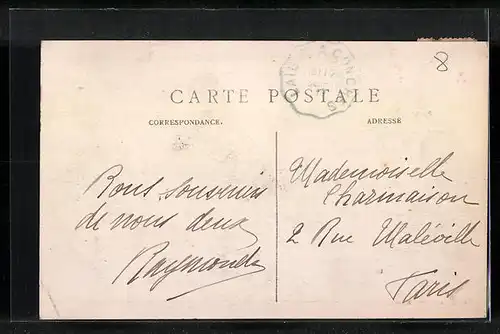 8
CARTE POSTALE
CORRESPONDANCE.
ADRESSE
Bons souvenirs
de nous deux
Raymonde
Mademoiselle
Charmaison
2 Rue Maléville
Paris